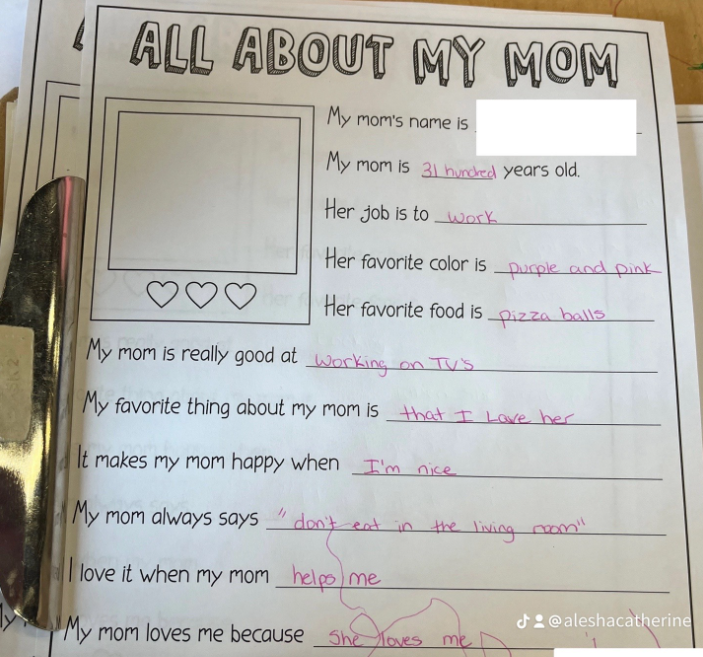 ALL ABOUT MY MOM
My mom's name is
My mom is 31 hundred years old.
Her job is to work
Her favorite color is purple and pink
Her favorite food is pizza balls
My mom is really good at working on TV's
My favorite thing about my mom is that I Love her
It makes my mom happy when I'm nice
My mom always says "don't eat in the living room"
I love it when my mom helps me
My mom loves me because she loves me
@aleshacatherine